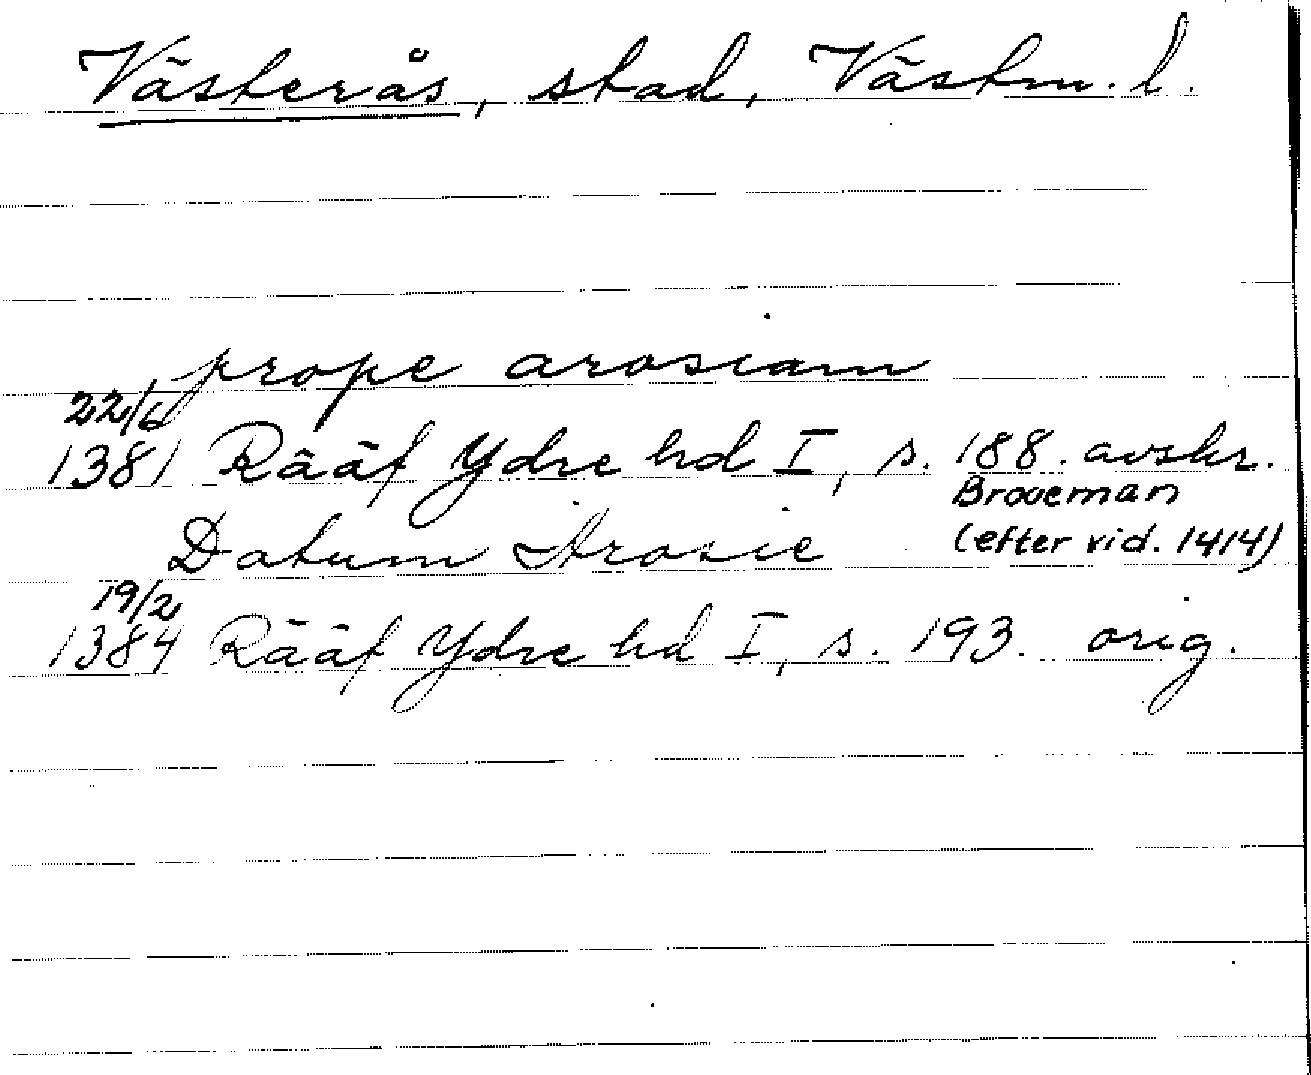 Västerås, stad, Västm. l.
prope arosiam
22/6
1381 Rääf Ydre hd I, s. 188. avskr.
Brooeman
(efter vid. 1414)
Datum Arosie
19/2
1384 Rääf Ydre hd I, s. 193. orig.